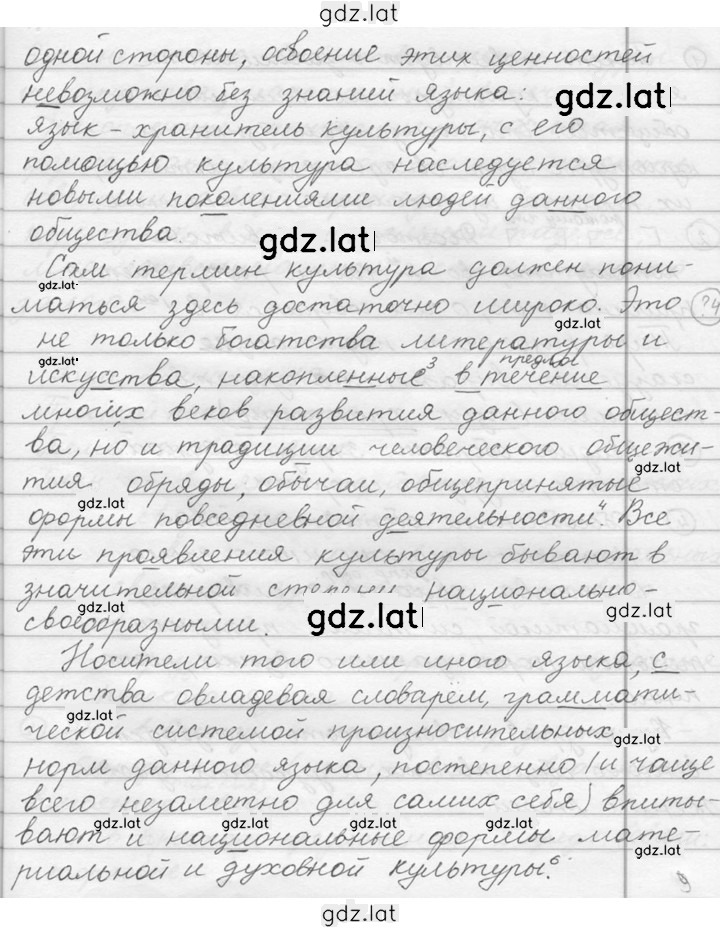 gdz.lat
одной стороны, освоение этих ценностей
невозможно без знаний языка:
gdz.lat
язык - хранитель культуры, с его
помощью культура наследуется
новыми поколениями людей данного
общества.
gdz.lat
Сам термин культура должен пони-
gdz.lat
маться здесь достаточно широко. Это
gdz.lat
не только богатства литературы и
gdz.lat
предлог
искусства, накопленные³ в течение
многих веков развития данного общест-
ва, но и традиции человеческого общежи-
gdz.lat
тия обряды, обычаи, общепринятые
gdz.lat
формы повседневной деятельности". Все
эти проявления культуры бывают в
значительной степени национально-
gdz.lat gdz.lat gdz.lat
своеобразными.
Носители того или иного языка, с
детства овладевая словарём, граммати-
gdz.lat
ческой системой произносительных
gdz.lat
норм данного языка, постепенно (и чаще
всего незаметно для самих себя) впиты-
gdz.lat gdz.lat gdz.lat gdz.lat
вают и национальные формы мате-
риальной и духовной культуры⁶.
9
gdz.lat